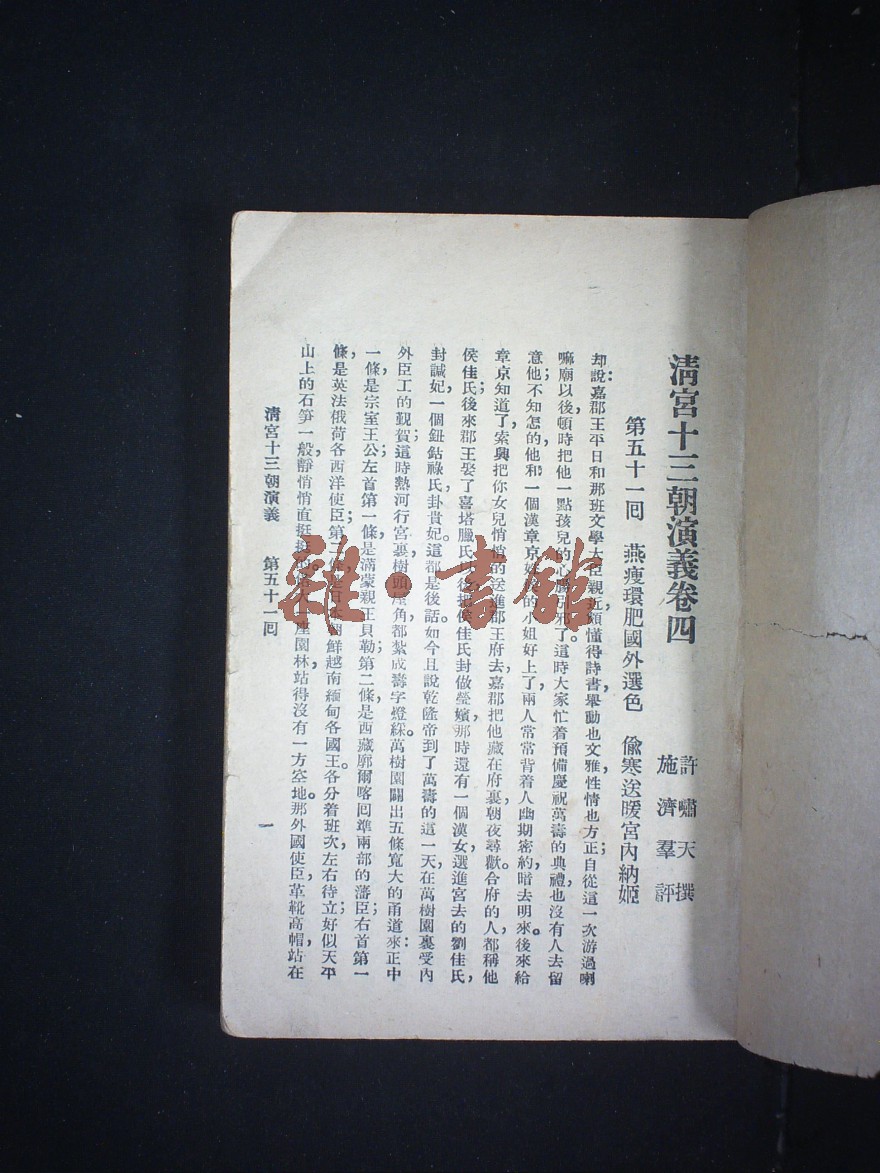 清宮十三朝演義卷四
許嘯天撰
施濟羣評
第五十一回 燕瘦環肥國外選色 偷寒送暖宮內納姬
却說:嘉郡王平日和那班文學大臣親近,頗懂得詩書,舉動也文雅,性情也方正,自從這一次游過喇
嘛廟以後,頓時把他一點孩兒的心腸引邪了。這時大家忙着預備慶祝萬壽的典禮,也沒有人去留
意他;不知怎的,他和一個漢章京 的小姐好上了,兩人常常背着人幽期密約,暗去明來。後來給
章京知道了,索興把你女兒悄悄的送進郡王府去,嘉郡把他藏在府裏,朝夜尋歡。合府的人都稱他
侯佳氏;後來郡王娶了喜塔臘氏, 後把侯佳氏封做瑩嬪,那時還有一個漢女選進宮去的劉佳氏,
封諴妃,一個鈕鈷祿氏封貴妃,這都是後話。如今且說乾隆帝到了萬壽的這一天,在萬樹園裏受內
外臣工的覲賀;這時熱河行宮裏樹頭屋角都紮成壽字燈綵。萬樹園闢出五條寬大的甬道來:正中
一條,是宗室王公;左首第一條,是滿蒙親王貝勒;第二條,是西藏廓爾喀回準兩部的藩臣;右首第一
條,是英法俄荷各西洋使臣;第二條,是日本朝鮮越南緬甸各國王。各分着班次,左右待立;好似天平
山上的石笋一般,靜悄悄直挺挺的,偌大一座園林,站得沒有一方空地。那外國使臣,革靴高帽,站在
清宮十三朝演義 第五十一回
一
雜·書館